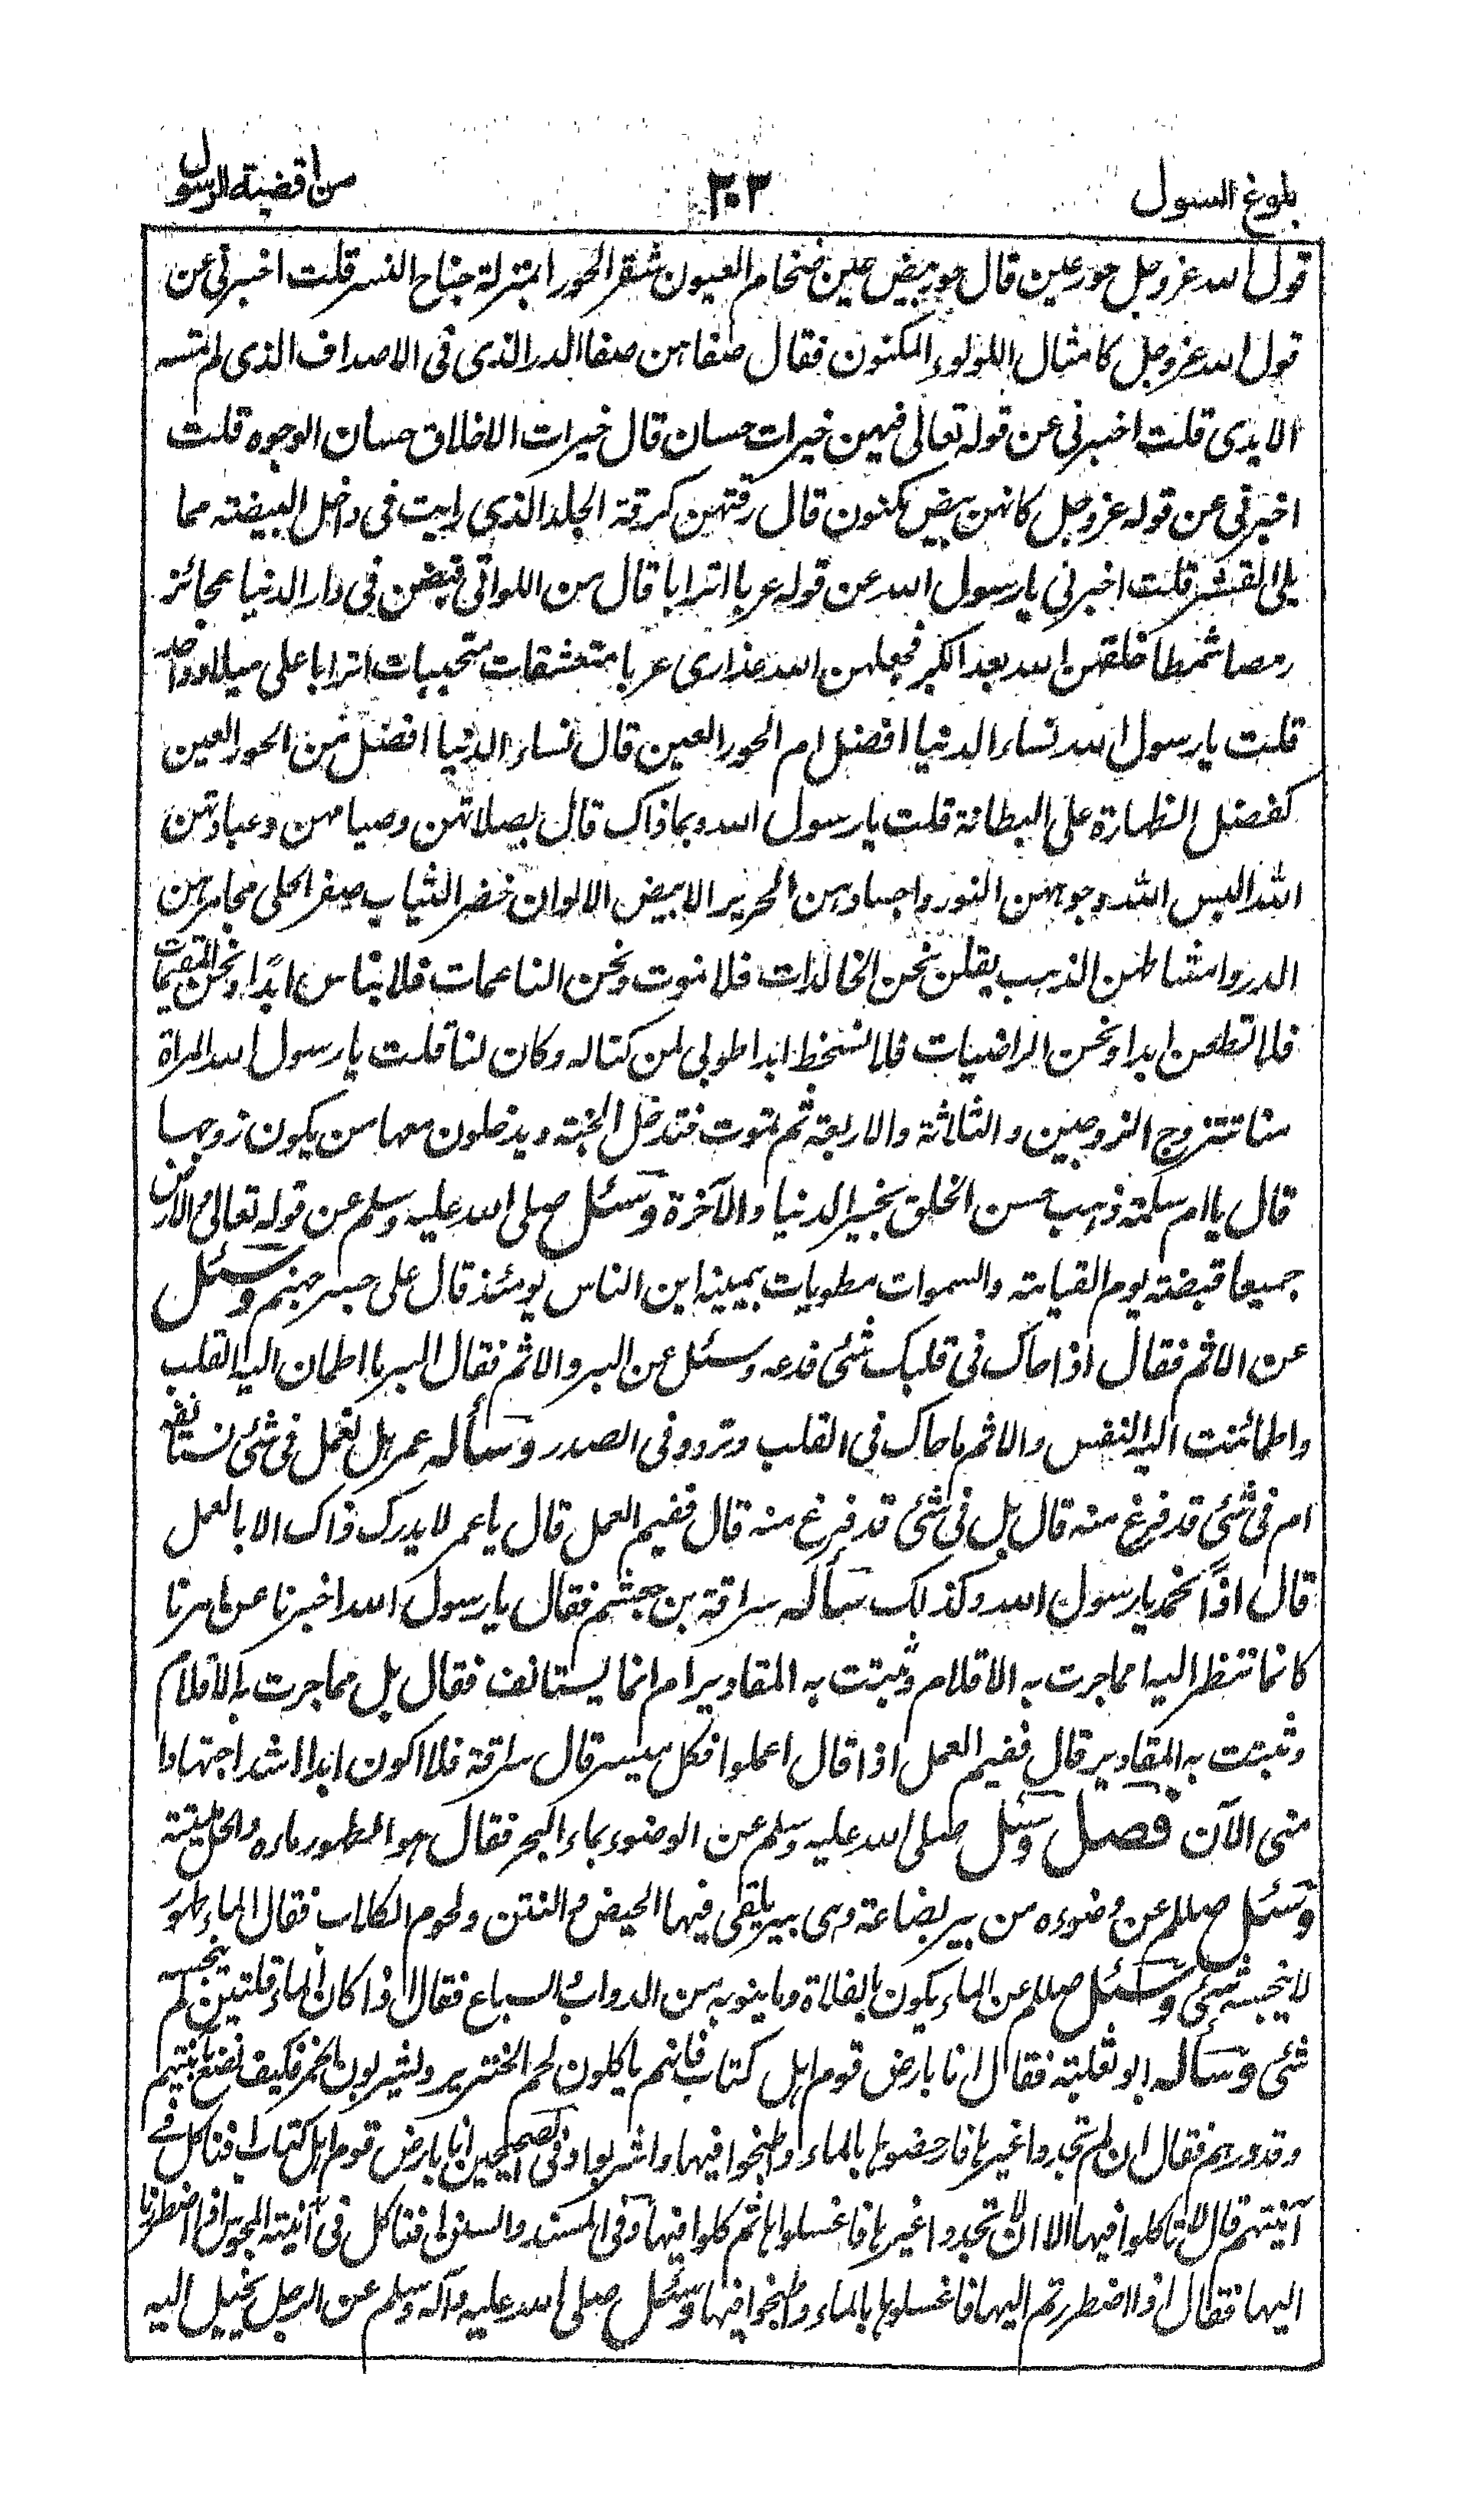 بلوغ السول ٢٠٣ من اقضية الرسول
قول الله عز وجل حور عين قال حور بيض عين ضخام العيون شقر الحوراء بمنزلة جناح النسر قلت اخبرني عن
قول الله عز وجل كامثال اللولوء المكنون فقال صفاهن صفا الدر الذي في الاصداف الذي لم تمسه
الايدي قلت اخبرني عن قوله تعالى فيهن خيرات حسان قال خيرات الاخلاق حسان الوجوه قلت
اخبرني عن قوله عز وجل كانهن بيض مكنون قال رقتهن كرقة الجلد الذي رايت في داخل البيضة مما
يلي القشر قلت اخبرني يا رسول الله عن قوله عربا اترابا قال هن اللواتي قبضن في دار الدنيا عجائز
رمصا شمطا خلقهن الله بعد الكبر فجعلهن الله عذارى عربا متعشقات متحببات اترابا على ميلاد واحد
قلت يا رسول الله نساء الدنيا افضل ام الحور العين قال نساء الدنيا افضل من الحور العين
كفضل الظهارة على البطانة قلت يا رسول الله وبما ذاك قال بصلاتهن وصيامهن وعبادتهن
الله البس الله وجوههن النور واجسادهن الحرير الابيض الالوان خضر الثياب صفر الحلي مجامرهن
الدر وامشاطهن الذهب يقلن نحن الخالدات فلا نموت ونحن الناعمات فلا نباس ابدًا ونحن المقيمات
فلا نظعن ابدا ونحن الراضيات فلا نسخط ابدا طوبى لمن كنا له وكان لنا قلت يا رسول الله المراة
منا تتزوج الزوجين والثلاثة والاربعة ثم تموت فتدخل الجنة ويدخلون معها من يكون زوجها
قال يا ام سلمة ذهب حسن الخلق بخير الدنيا والآخرة وسئل صلى الله عليه وسلم عن قوله تعالى والارض
جميعا قبضته يوم القيامة والسموات مطويات بيمينه اين الناس يومئذ قال على جسر جهنم وسئل
عن الاثم فقال اذا حاك في قلبك شئ فدعه وسئل عن البر والاثم فقال البر ما اطمان اليه القلب
واطمائنت اليه النفس والاثم ما حاك في القلب وتردد في الصدر وسأله عمر هل نعمل في شئ نستانفه
ام في شئ قد فرغ منه قال بل في شئ قد فرغ منه قال ففيم العمل قال يا عمر لا يدرك ذاك الا بالعمل
قال اذًا نجد يا رسول الله وكذلك سأله سراقة بن جعشم فقال يا رسول الله اخبرنا عن امرنا
كانما ننظر اليه امما جرت به الاقلام وثبتت به المقادير ام انما يستانف فقال بل مما جرت به الاقلام
وثبتت به المقادير قال ففيم العمل اذا قال اعملوا فكل ميسر قال سراقة فلا اكون ابدا اشد اجتهادا
منى الآن فصل وسئل صلى الله عليه وسلم عن الوضوء بماء البحر فقال هو الطهور ماءه والحل ميتته
وسئل صللم عن وضوءه من بير بضاعة وهى بير يلقى فيها الحيض والنتن ولحوم الكلاب فقال الماء طهور
لا ينجسه شئ وسئل صللم عن الماء يكون بالفلاة وما ينوبه من الدواب والسباع فقال اذا كان الماء قلتين لم ينجسه
شئ وسأله ابو ثعلبة فقال انا بارض قوم اهل كتاب فانهم ياكلون لحم الخنزير ويشربون الخمر فكيف نصنع بآنيتهم
وقدورهم فقال ان لم تجدوا غيرها فارحضوها بالماء واطبخوا فيها واشربوا وفي الصحيحين انا بارض قوم اهل كتاب افناكل في
آنيتهم قال لا تاكلوا فيها الا ان لا تجدوا غيرها فاغسلوها ثم كلوا فيها وفي المسند والسنن افناكل في آنية المجوس اذا اضطررنا
اليها فقال اذا اضطررتم اليها فاغسلوها بالماء واطبخوا فيها وسئل صلى الله عليه وآله وسلم عن الرجل يخيل اليه